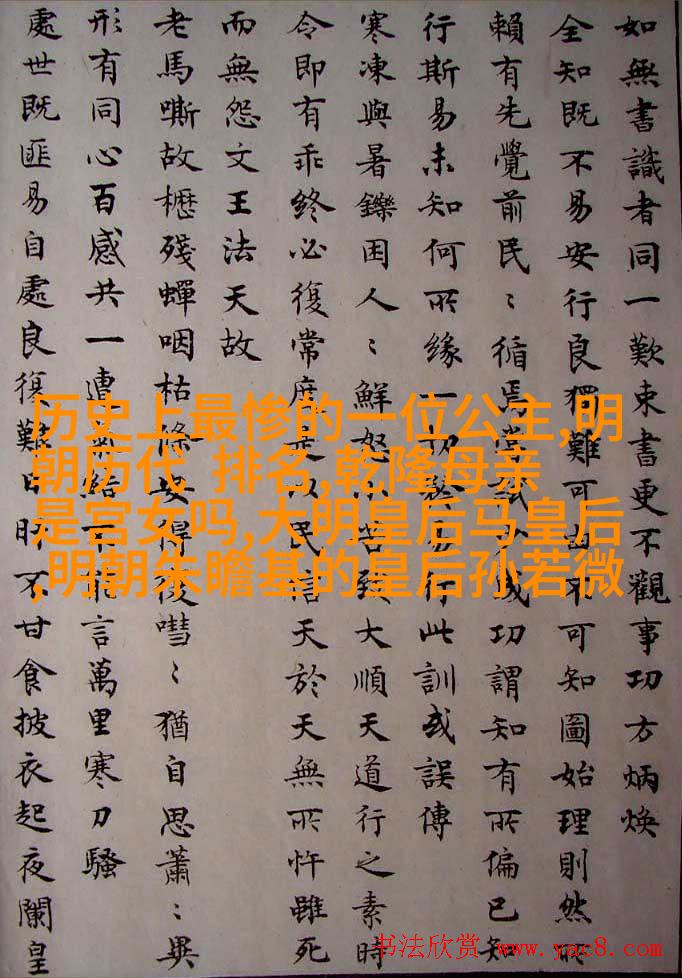 如無書識者同一歎束書更不觀事功方炳煥
全知既不易安行良獨難可不可知圖始理則然所
賴有先覺前民〻循焉功謂知有所偏已知
行斯易未知何所緣一易行此訓或誤傳
寒凍與暑鑠困人〻鮮怒大順天道行之素時
令即有乖終必復常度民信天於天無所忤雖死
而無怨文王法天故
老馬嘶故櫪殘蟬咽枯條安得後嘒〻猶自思蕭〻異
形有同心百感共一遭結不言萬里寒刀騷
處世既匪易自處良復難日旰不甘食披衣起夜闌皇
历史上最惨的一位公主,明
朝历代 排名,乾隆母亲
是宫女吗,大明皇后马皇后
,明朝朱瞻基的皇后孙若微
书法欣赏 www.yac8.com